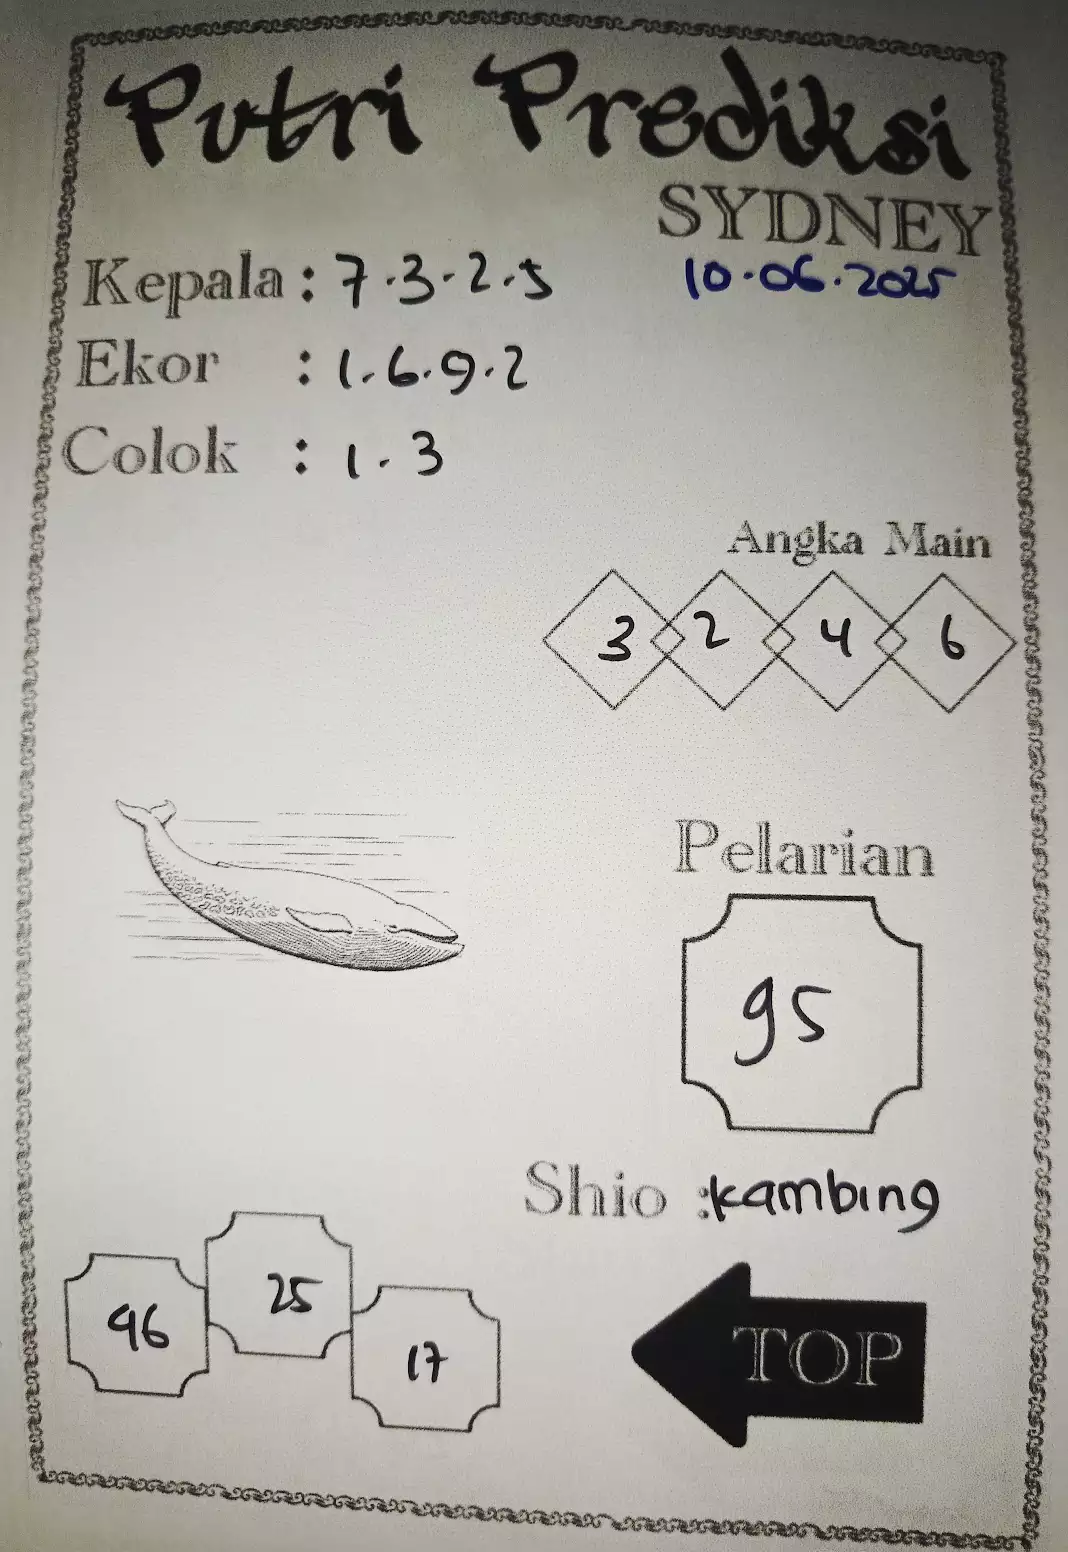 Putri Prediksi
SYDNEY
Kepala : 7.3.2.5
10.06.2025
Ekor : 1.6.9.2
Colok : 1.3
Angka Main
3 2 4 6
Pelarian
95
Shio : kambing
96 25 17
TOP